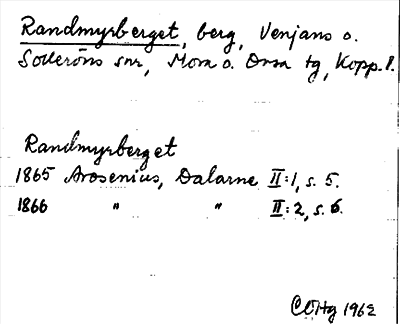 Randmyrberget, berg, Venjans o.
Solleröns snr, Mora o. Orsa tg, Kopp. l.
Randmyrberget
1865 Arosenius, Dalarne II:1, s. 5.
1866 " " II:2, s. 6.
COHg 1962